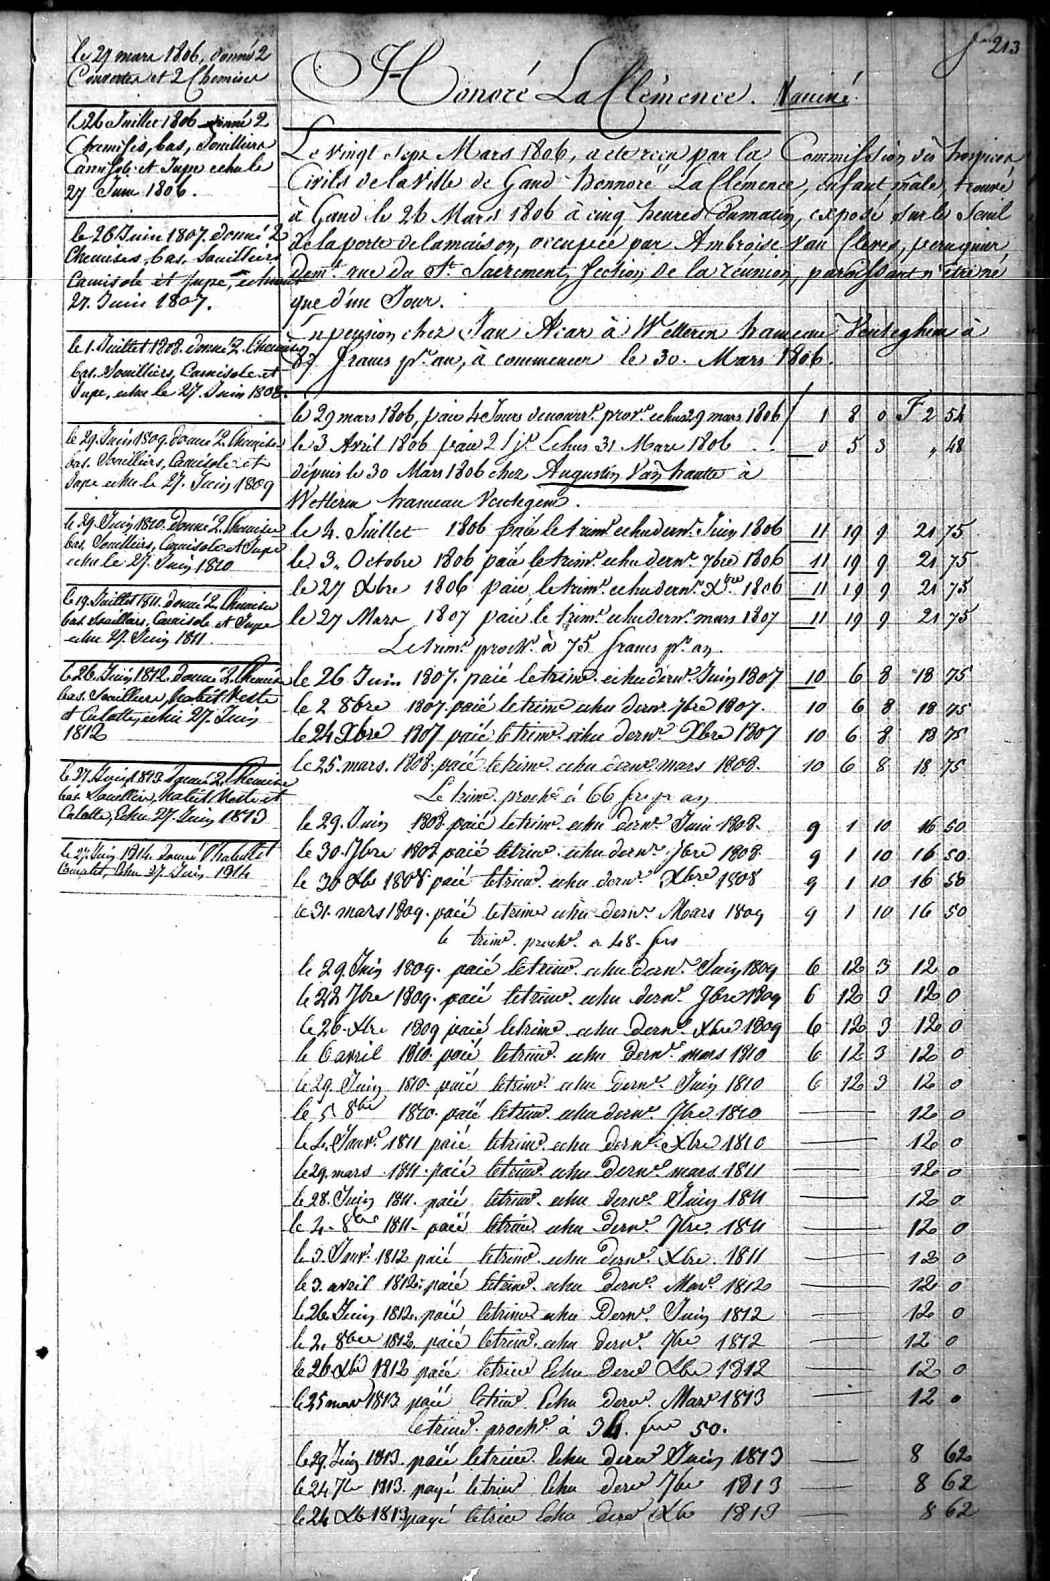 213
le 27 mars 1806, donné 2
Couvertes et 2 Chemises
le 26 Juillet 1806 donné 2
Chemises, bas, Souilliers
Camisole et Jupe echu le
27 Juin 1806.
le 26 Juin 1807. donné 2
Chemises, bas, Souilliers
Camisole et Jupe, echus
27. Juin 1807.
le 1. Juillet 1808. donné 2. Chemises
bas. Souilliers, Camisole et
Jupe, echu le 27. Juin 1808.
le 29. Juin 1809. donné 2. Chemise
bas. Souilliers, Camisole et
Jupe echu le 27. Juin 1809
le 29. Juin 1810. donné 2. Chemise
bas. Souilliers, Camisole et Jupe
echu le 27. Juin 1810
le 19. Juillet 1811. donné 2. Chemise
bas. Souilliers, Camisole et Jupe
echu 27. Juin 1811
le 26. Juin 1812. donné 2. Chemise
bas. Souilliers, habit Veste
et Culotte, echu 27. Juin
1812
le 27. Juin 1813. donné 2. Chemise
bas. Souilliers, habit Veste et
Culotte, Echu 27. Juin 1813
le 27 Juin 1814. donné l'habillet
complet, Echu 27. Juin 1814
Honoré La Clémence. Vacciné
Le vingt sept Mars 1806, a eté recu par la Commission des hospices
Civils de la Ville de Gand Honnoré La Clémence, enfant mâle, trouvé
à Gand le 26 Mars 1806 à cinq heures du matin, exposé sur le Seuil
de la porte de la maison, occupée par Ambroise Van Cleves, peruquier
demt. rue du St. Sacrement, Section de la réunion, paroissant n'etre né
que d'un Jour.
En pension chez Jan Acar à Wetteren hameau Venteghem à
87 francs pr. an, à commencer le 30. Mars 1806.
le 29 mars 1806, paié 4 Jours de nourre. prove. echus 29 mars 1806 1 8 0 F 2 54
le 3 Avril 1806 paié 2 js. Echus 31 Mars 1806 0 5 3 " 48
dépuis le 30 Mars 1806 chez Augustin Van hautte à
Wetteren hameau Ventegem.
le 4. Juillet 1806 paié le trime. echu derne. Juin 1806 11 19 9 21 75
le 3. Octobre 1806 paié le trime. echu derne. 7bre 1806 11 19 9 21 75
le 27 Xbre 1806 paié, le trime. echu derne. Xbre 1806 11 19 9 21 75
le 27 Mars 1807 paié le trime. echu derne. mars 1807 11 19 9 21 75
Le trime. proche. à 75 francs pr. an.
le 26 Juin 1807. paié le trime. echu derne. Juin 1807 10 6 8 18 75
le 2 8bre 1807. paié le trime echu derne. 7bre 1807. 10 6 8 18 75
le 24 Xbre 1807 paié le trime. echu derne. Xbre 1807 10 6 8 18 75
le 25. mars. 1808. paié le trime. echu derne mars 1808. 10 6 8 18 75
Le trime. proche. à 66 frs pr an
le 29. Juin 1808 paié le trime. echu derne. Juin 1808. 9 1 10 16 50
le 30. 7bre 1808 paié le trime. echu derne. 7bre 1808 9 1 10 16 50.
le 30 Xb 1808. paié le trime. echu derne. Xbre 1808 9 1 10 16 50
le 31. mars 1809. paié le trime echu derne. Mars 1809 9 1 10 16 50
le trime. proche. a 48. frs
le 29. Juin 1809. paié le trime. echu derne. Juin 1809 6 12 3 12 0
le 22 7bre 1809. paié le trime. echu derne. 7bre 1809 6 12 3 12 0
le 26. Xbre 1809 paié le trime. echu derne. Xbre 1809 6 12 3 12 0
le 6 avril 1810. paié le trime. echu derne. mars 1810 6 12 3 12 0
le 29. Juin 1810. paié le trime. echu derne. Juin 1810 6 12 3 12 0
le 5 8bre 1810. paié le trime. echu derne. 7bre 1810 12 0
le 4. Janvr. 1811 paié le trime. echu derne. Xbre 1810 12 0
le 29. mars 1811. paié le trime. echu derne. mars. 1811 12 0
le 28. Juin 1811. paié le trime. echu derne. Juin 1811 12 0
le 4. 8bre 1811. paié le trime. echu derne. 7bre. 1811 12 0
le 3. Janvr. 1812 paié, le trime. echu derne. Xbre. 1811 12 0
le 3. avril 1812. paié le trime. echu derne. Mars. 1812 12 0
le 26 Juin 1812. paié le trime echu derne. Juin 1812 12 0
le 2. 8bre 1812. paié le trime. echu derne. 7bre 1812 12 0
le 26 Xbre 1812 paié le trime Echu derne Xbre 1812 12 0
le 25 mars 1813 paié le trime. Echu derne. Mars 1813 12 0
le trime. proche. à 34. frs 50.
le 29 Juin 1813. paié le trime Echu derne Juin 1813 8 62
le 24 7br 1813. payé le trime Echu derne 7bre 1813 8 62
le 24 Xb 1813 payé le trime Echu derne Xbre 1813 8 62